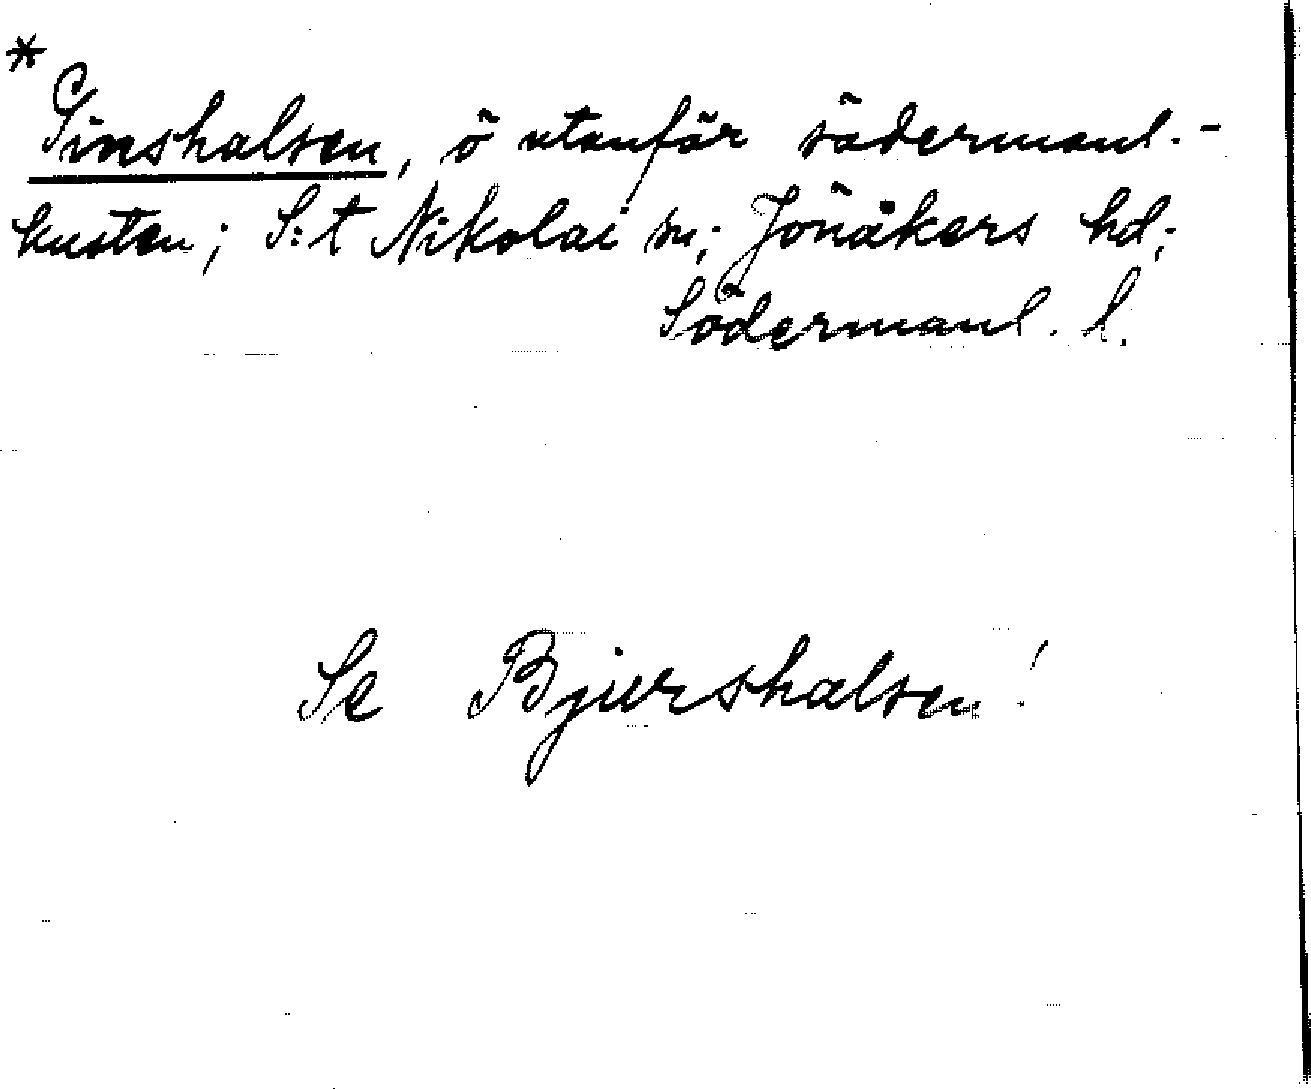 *
ö utanför södermanl.-
kusten; S:t Nikolai sn; Jönåkers hd;
Södermanl. l.
Se Bjurshalsen!